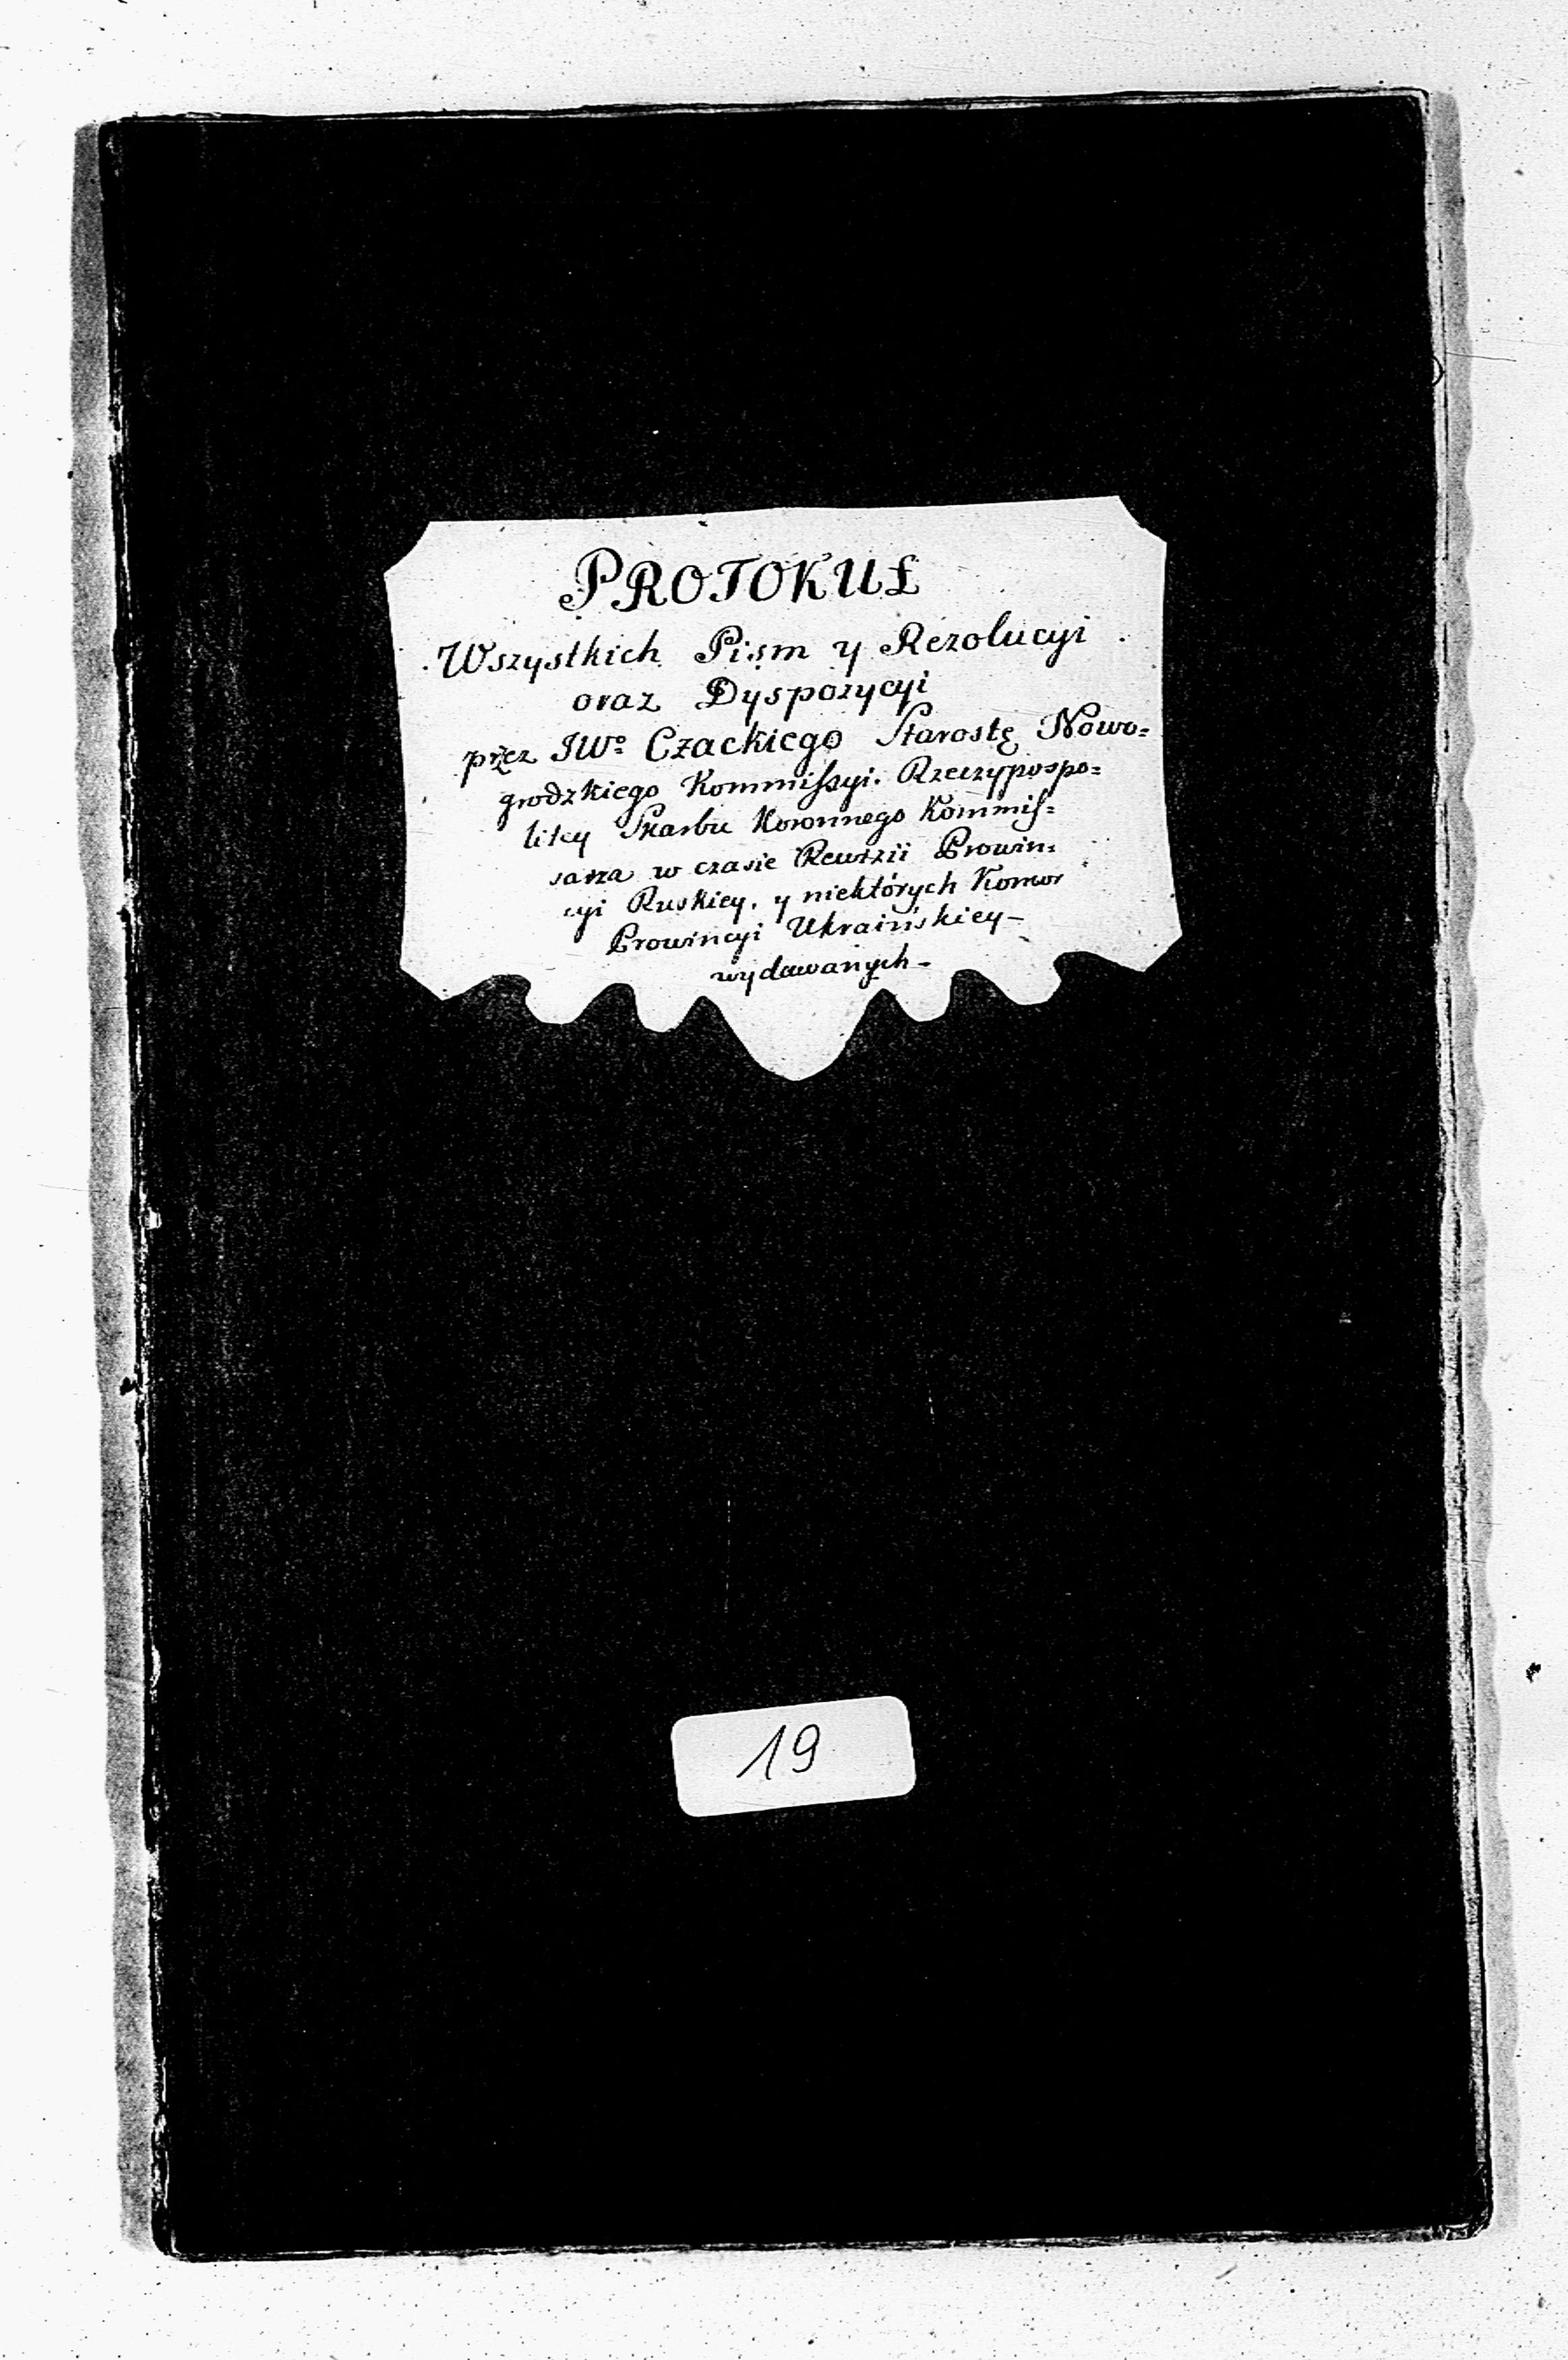 PROTOKUŁ
Wszystkich Pism y Rezolucyi
oraz Dyspozycyi
przez JWº Czackiego Starostę Nowo=
grodzkiego Kommissyi Rzeczypospo=
litey Skarbu Koronnego Kommis=
sarza w czasie Rewizii Prowin=
cyi Ruskiey, y niektórych Komor
Prowincyi Ukraińskiey-
wydawanych-
19